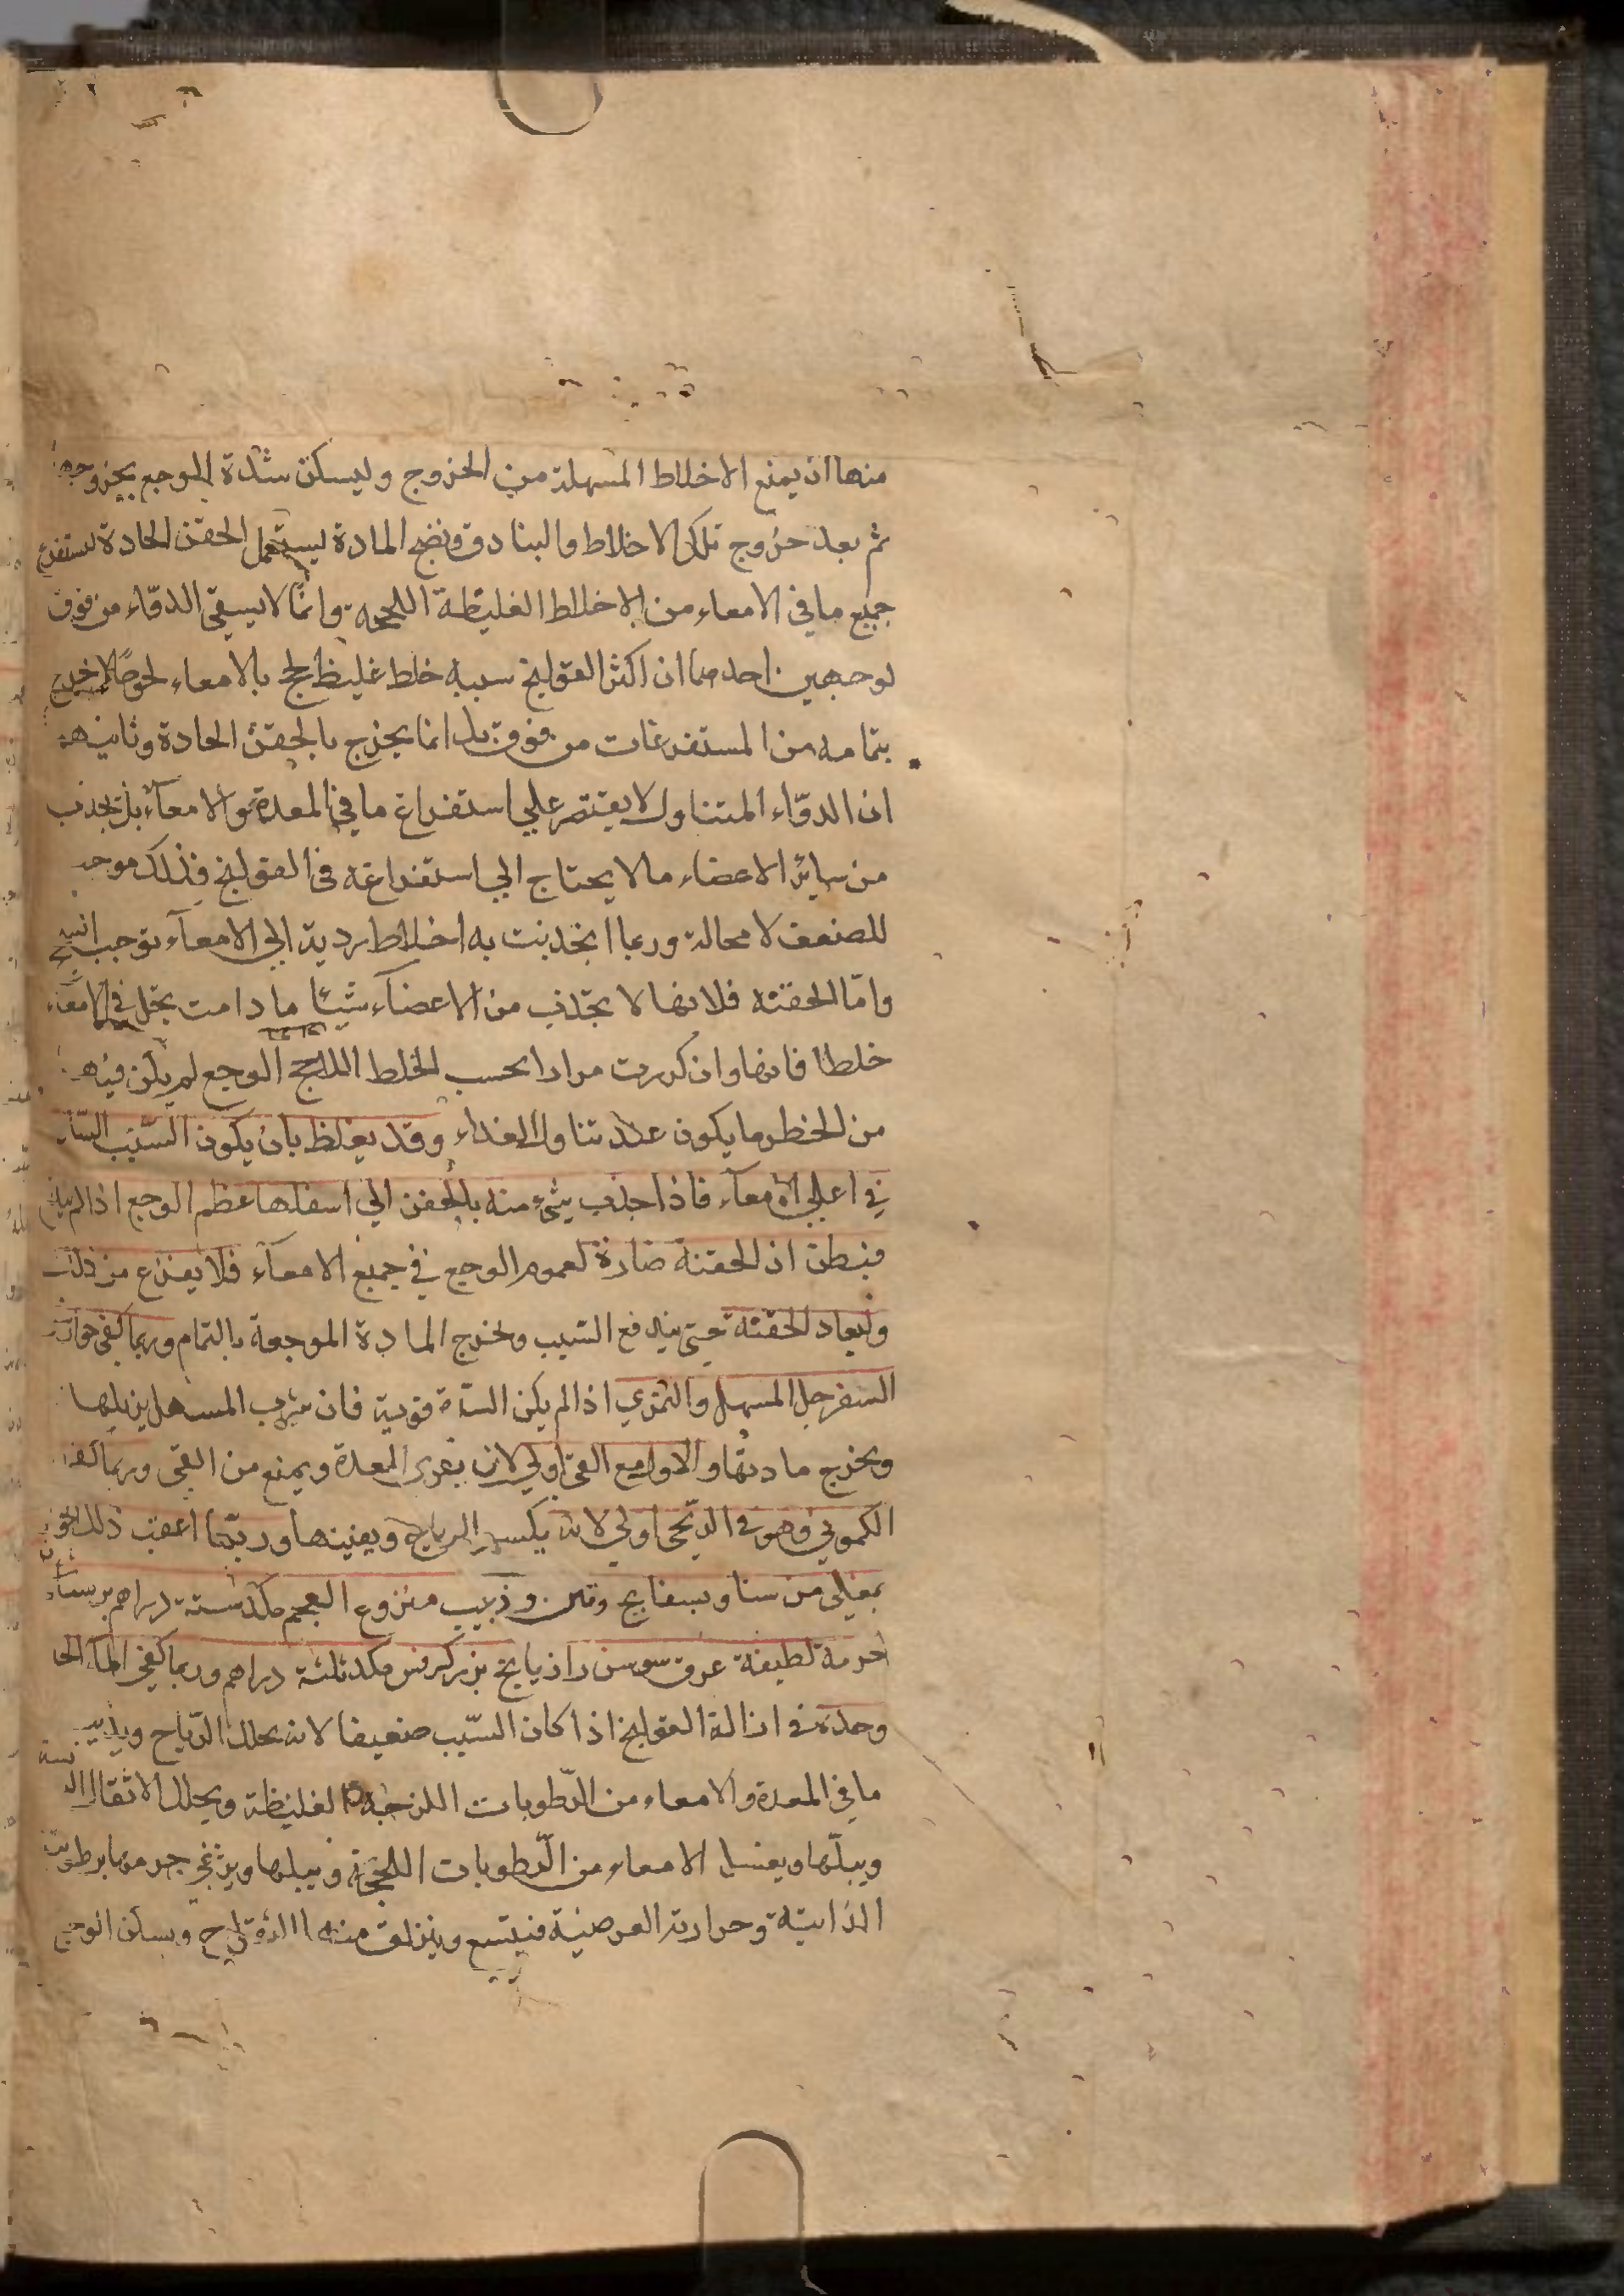 منها ان يمنع الاخلاط المسهلة من الخروج وليسكن شدة الوجع بخروجها
ثم بعد خروج تلك الاخلاط والبنادق ونضج المادة يستعمل الحقن الحادة ليستفرغ
جميع ما في الامعاء من الاخلاط الغليظة اللحجة وانما لا يسقى الدواء من فوق
لوجهين احدهما ان اكثر القولنج سببه خلط غليظ لحج بالامعاء لحوجا لا يخرج
بتمامه من المستفرغات من فوق بل انما يخرج بالحقن الحادة وثانيهما
ان الدواء المتناول لا يقتصر علي استفراغ ما في المعدة والامعآء بل يجذب
من سائر الاعضاء ما لا يحتاج الي استفراغه في القولنج فذلك موجب
للضعف لا محالة وربما انجذبت به اخلاط ردية الي الامعآء توجب
واما الحقنة فلانها لا تجذب من الاعضآء شيئا ما دامت تجد في الامعاء
خلطا فانها وان كررت مرارا بحسب الخلط اللاحج الوجع لم يكن فيها
من الخطر ما يكون عند تناول الغذاء وقد يغلظ بان يكون السبب
في اعلي الامعآء فاذا جذب شيء منه بالحقن الي اسفلها عظم الوجع اذا لم
فيظن ان الحقنة ضارة لعموم الوجع في جميع الامعآء فلا يفزع من ذلك
وليعاد الحقنة حتى يندفع السبب ويخرج المادة الموجعة بالتمام وربما كفى
السفرجل المسهل والتمري اذا لم يكن السدة قوية فان شرب المسهل يزيلها
ويخرج مادتها والاول مع القئ اولي لانه يقوي المعدة ويمنع من القي وربما كفا
الكموني وهو في الريحي اولي لانه يكسر الرياح ويفنيها وربما اعقب ذلك
بمغلى من سنا وبسفايج وتين وزبيب منزوع العجم مكد ستة دراهم
حزمة لطيفة عرق سوس رازيانج بزر كرفس مكد ثلثة دراهم وربما كفي المآء الحار
وحده في ازالة القولنج اذا كان السبب ضعيفا لانه يحلل الرياح ويذيب
ما في المعدة والامعاء من الرطوبات اللزجة الغليظة ويحلل الاثقال
ويبلها ويغسل الامعاء من الرطوبات اللحجة ويبلها ويرخي جرمها برطوبته
الذاتية وحرارته العرضية فيتسع وينزلق منه ويسكن الوجع